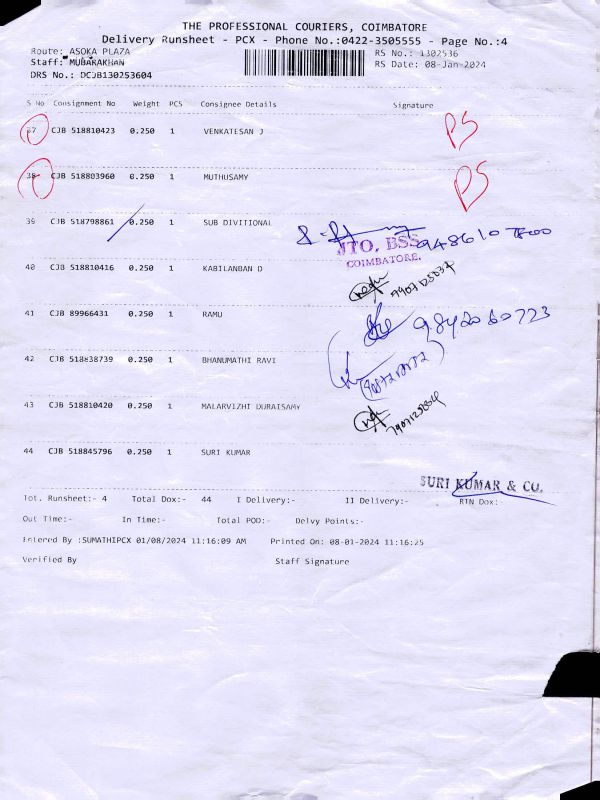 THE PROFESSIONAL COURIERS, COIMBATORE
Delivery Runsheet - PCX - Phone No.:0422-3505555 - Page No.:4
Route: ASOKA PLAZA RS No.: 1302536
Staff: MUBARAKHAN RS Date: 08-Jan-2024
DRS No.: DCJB130253604
S No Consignment No Weight PCS Consignee Details Signature
37 CJB 518810423 0.250 1 VENKATESAN J PS
38 CJB 518803960 0.250 1 MUTHUSAMY PS
39 CJB 518798861 0.250 1 SUB DIVITIONAL
JTO, BSS
COIMBATORE.
40 CJB 518810416 0.250 1 KABILANBAN D
41 CJB 89966431 0.250 1 RAMU 9842060723
42 CJB 518838739 0.250 1 BHANUMATHI RAVI
43 CJB 518810420 0.250 1 MALARVIZHI DURAISAMY
44 CJB 518845796 0.250 1 SURI KUMAR
SURI KUMAR & CO.
Tot. Runsheet:- 4 Total Dox:- 44 I Delivery:- II Delivery:- RTN Dox:-
Out Time:- In Time:- Total POD:- Delvy Points:-
Entered By :SUMATHIPCX 01/08/2024 11:16:09 AM Printed On: 08-01-2024 11:16:25
Verified By Staff Signature